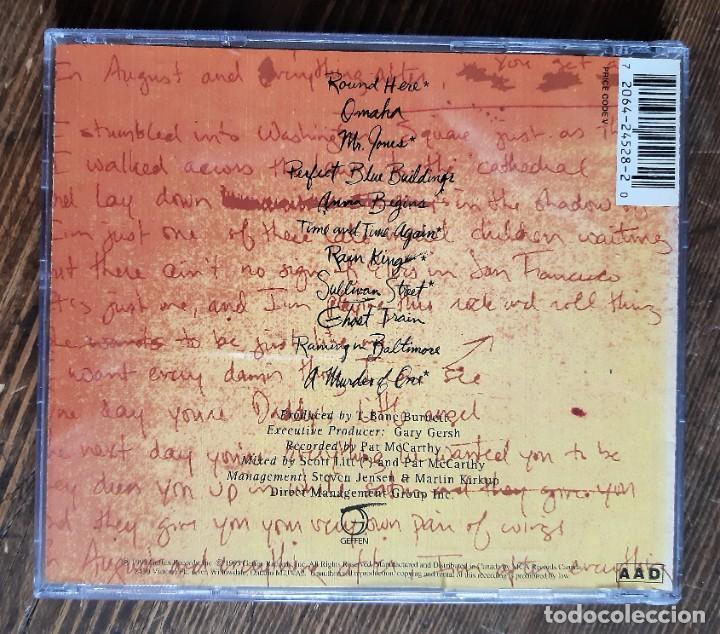 In August and everything after, You get a
Round Here*
Omaha
I stumbled into Washington Square just as the
Mr. Jones*
I walked across the cathedral
Perfect Blue Buildings
and lay down in the shadow of
Anna Begins
I'm just one of these children waiting
Time and Time Again*
Rain King*
but there ain't no sign in San Francisco
Sullivan Street*
just me, and I'm this rock and roll thing
Ghost Train
wants to be just
Raining in Baltimore
want every damn thing see
A Murder of One*
one day you're angel
Produced by T-Bone Burnett
Executive Producer: Gary Gersh
Recorded by Pat McCarthy
next day you're wanted you to be
Mixed by Scott Litt (*) and Pat McCarthy
Management: Steven Jensen & Martin Kirkup
they dress you up in they give you
Direct Management Group Inc.
and they give you your very own pair of wings
GEFFEN
August and everything
℗ 1993 Geffen Records, Inc. © 1993 Geffen Records, Inc. All Rights Reserved. Manufactured and Distributed in Canada by MCA Records Canada
Willowdale, Ontario Unauthorized reproduction, copying and rental of this recording is prohibited by law.
AAD
PRICE CODE V
7 20642-4528-2 0
todocoleccion